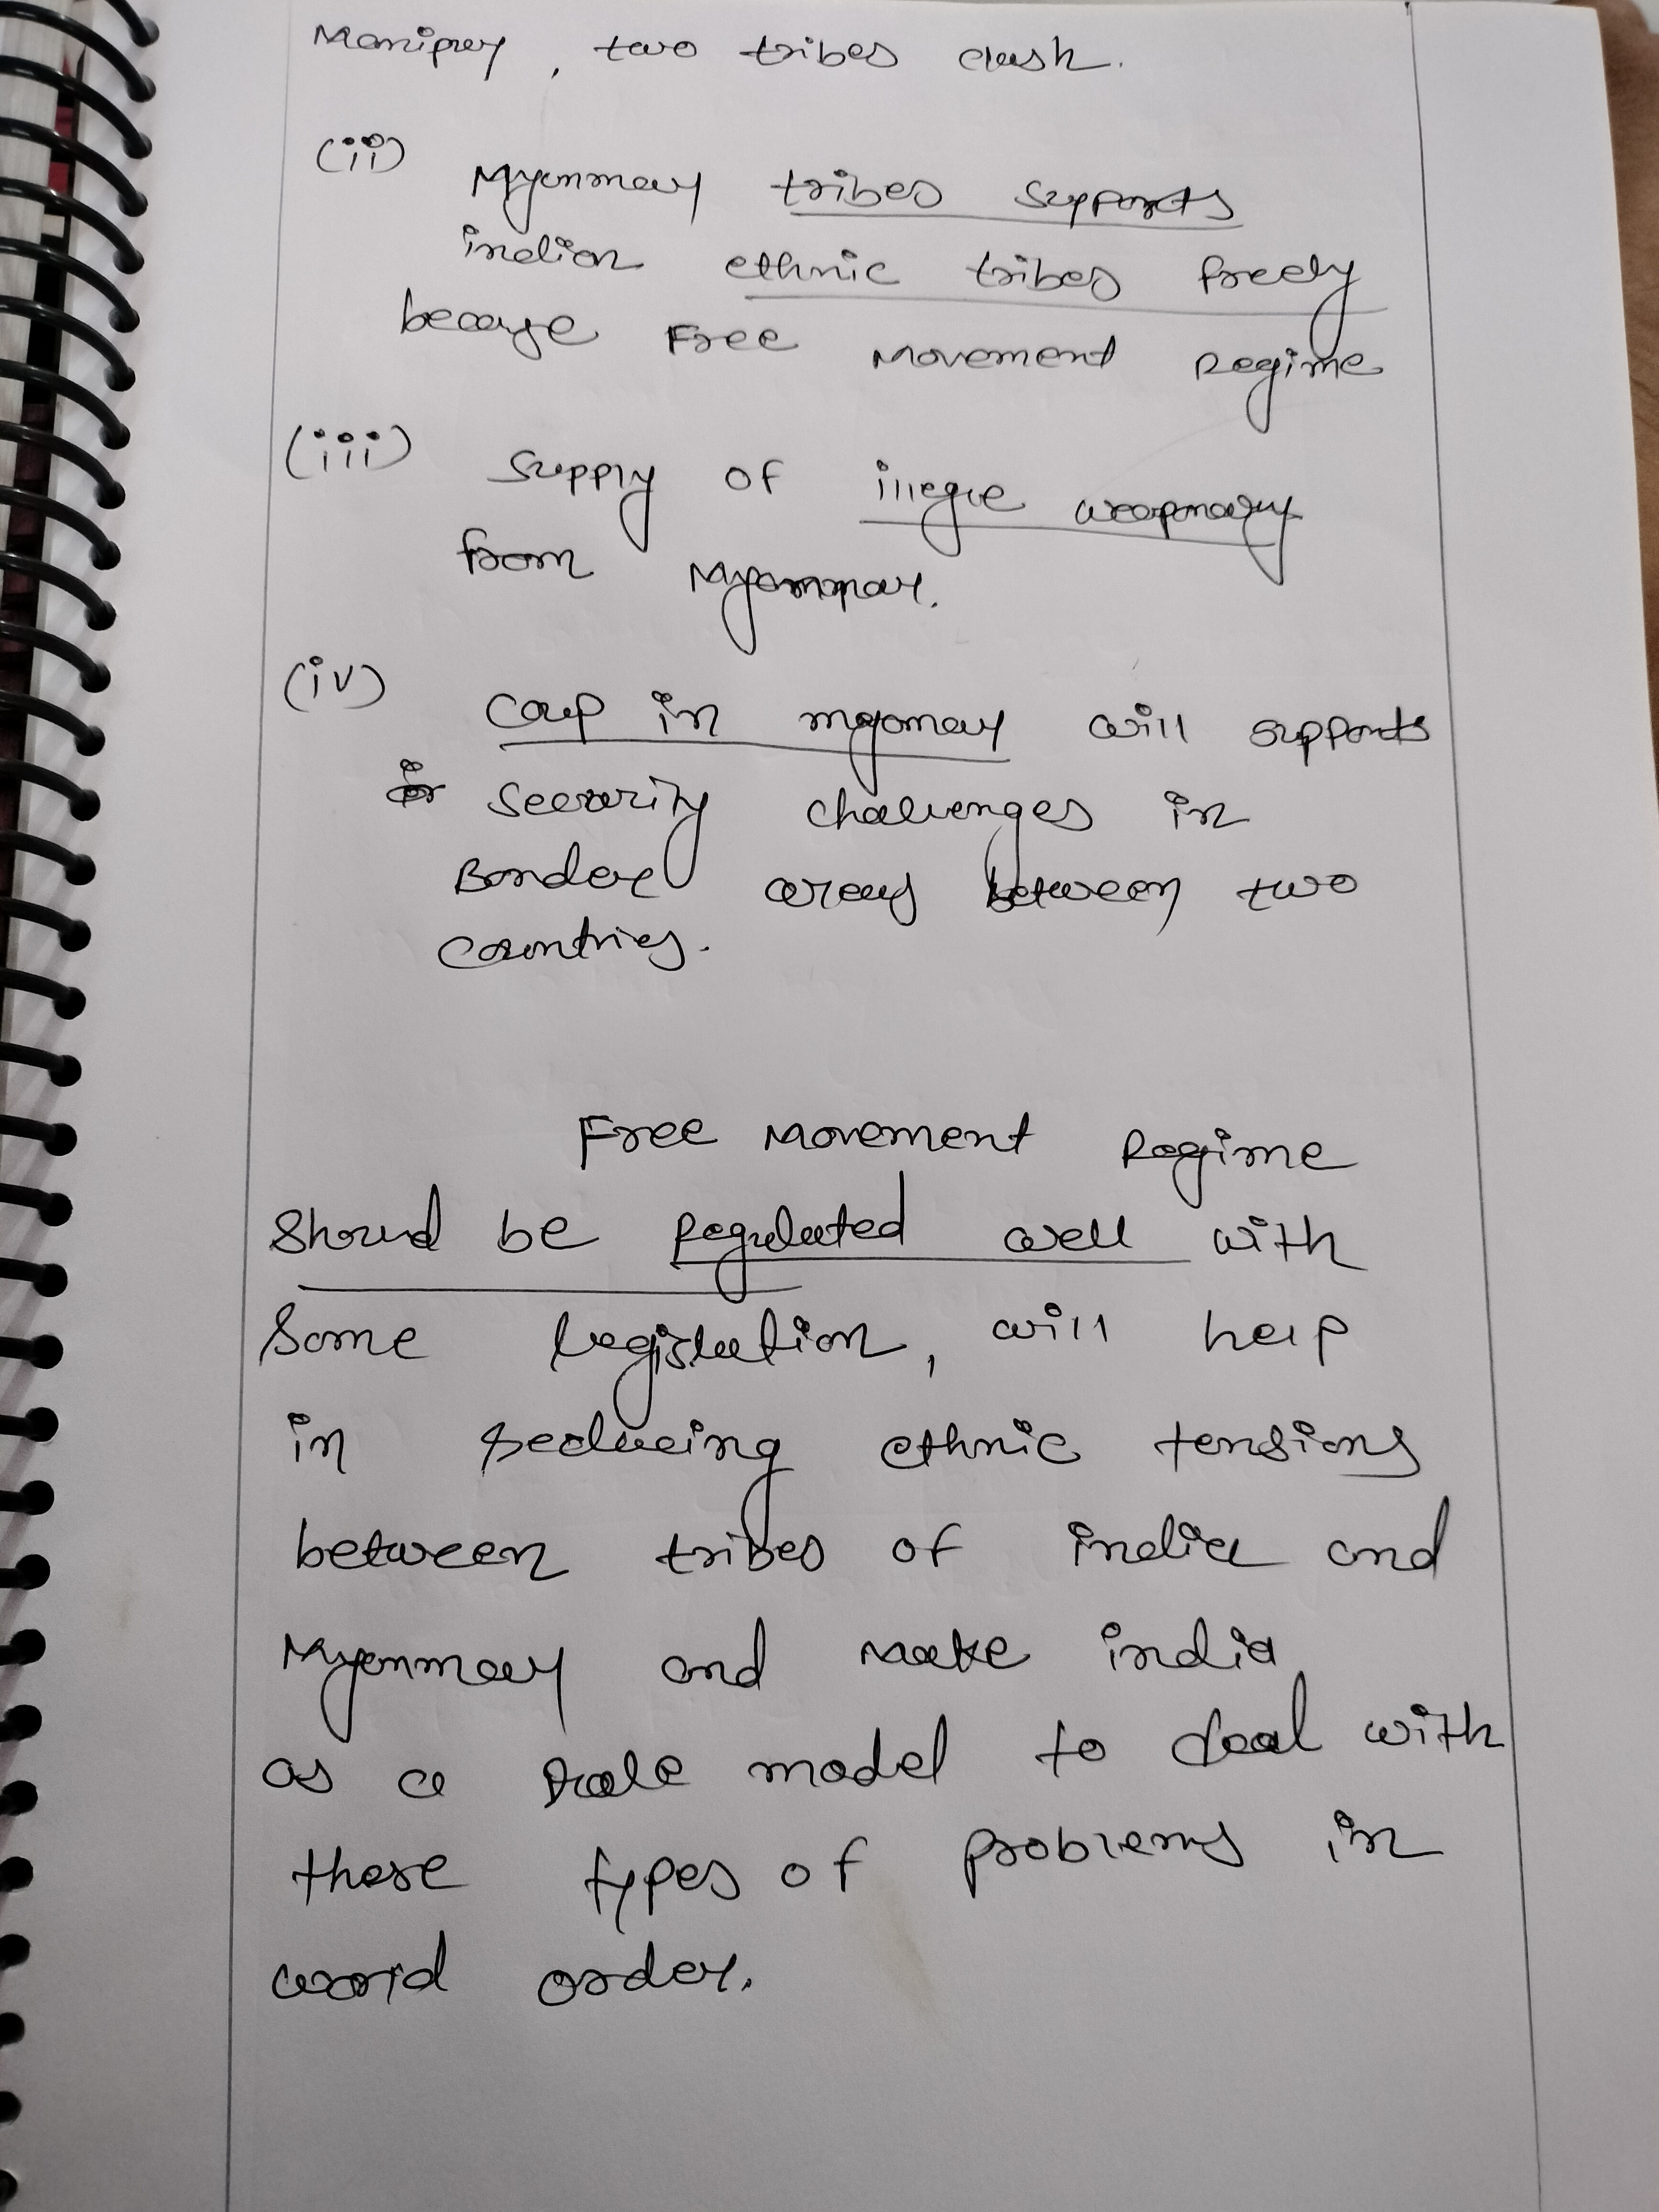 Manipur, two tribes clash.
(ii) Myanmar tribes supports
indian ethnic tribes freely
because Free Movement Regime
(iii) Supply of illegle weaponary
from Myanmar.
(iv) Coup in myamar will supports
security challenges in
Border areas between two
countries.
Free Movement Regime
Should be Regulated well with
Some legislation, will help
in reducing ethnic tensions
between tribes of india and
Myanmar and make india
as a role model to deal with
these types of problems in
world order.